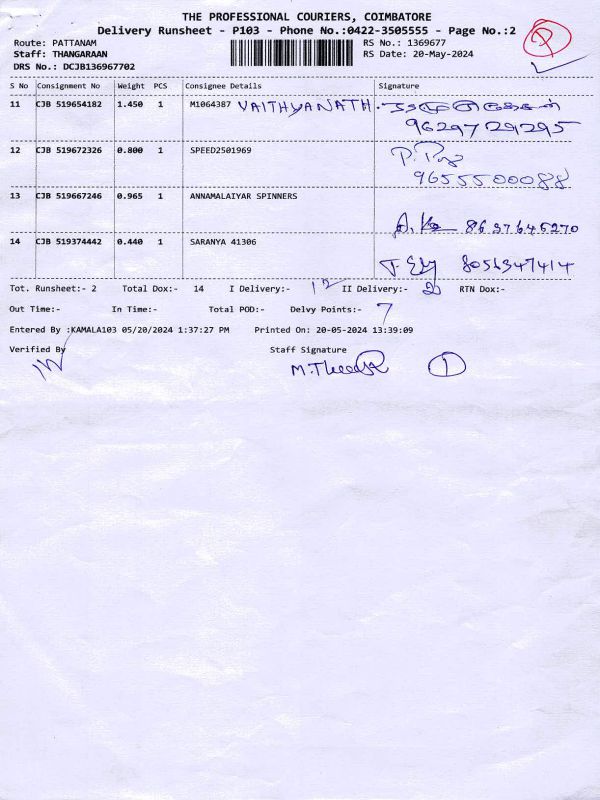 THE PROFESSIONAL COURIERS, COIMBATORE
Delivery Runsheet - P103 - Phone No.:0422-3505555 - Page No.:2
Route: PATTANAM RS No.: 1369677
Staff: THANGARAAN RS Date: 20-May-2024
DRS No.: DCJB136967702
S No Consignment No Weight PCS Consignee Details Signature
11 CJB 519654182 1.450 1 M1064387 VAITHYANATH.
9629729295
12 CJB 519672326 0.800 1 SPEED2501969
9655500088
13 CJB 519667246 0.965 1 ANNAMALAIYAR SPINNERS
8637645270
14 CJB 519374442 0.440 1 SARANYA 41306
8056347414
Tot. Runsheet:- 2 Total Dox:- 14 I Delivery:- 12 II Delivery:- 2 RTN Dox:-
Out Time:- In Time:- Total POD:- Delvy Points:- 7
Entered By :KAMALA103 05/20/2024 1:37:27 PM Printed On: 20-05-2024 13:39:09
Verified By Staff Signature
1